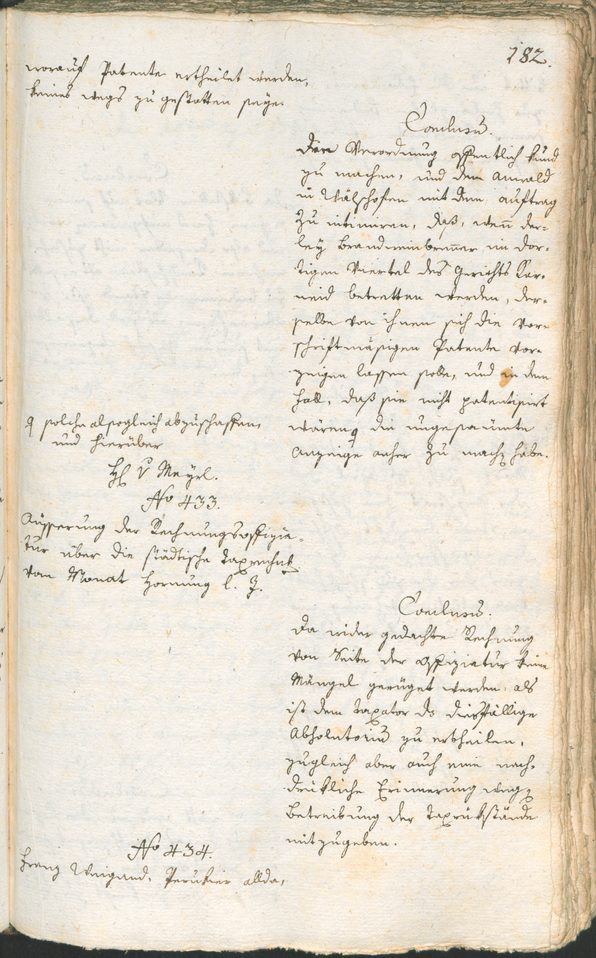 182.
worauf Patente ertheilet werden,
keines wegs zu gestatten seye.
Conclusum.
Diese Verordnung öffentlich kund
zu machen, und dem Anwald
in Wälschofen mit dem Auftrag
zu intimiren, daß, wenn der-
ley Brandweinbrenner im dor-
tigen Viertel des Gerichts Kar-
neid betretten werden, der-
selbe von ihnen sich die vor-
schriftmäsigen Patente vor-
zeigen lassen solle, und in dem
Fall, daß sie nicht patentisirt
wären die ungesäumte
Anzeige anher zu machen habe.
solche alsogleich abzuschaffen,
und hierüber
H. v. Meyrl.
No 433.
Äusserung der Rechnungsoffizia-
tur über die städtische Taxrechnung
vom Monat Hornung l. J.
Conclusum.
Da wider gedachte Rechnung
von Seite der Offiziatur keine
Mängel gerüget werden, als
ist dem Taxator das diesfällige
Absolutorium zu ertheilen,
zugleich aber auch eine nach-
drükliche Erinnerung wegen
Betreibung der Taxrükstände
mitzugeben.
No 434.
Franz Weigand, Perukier allda,